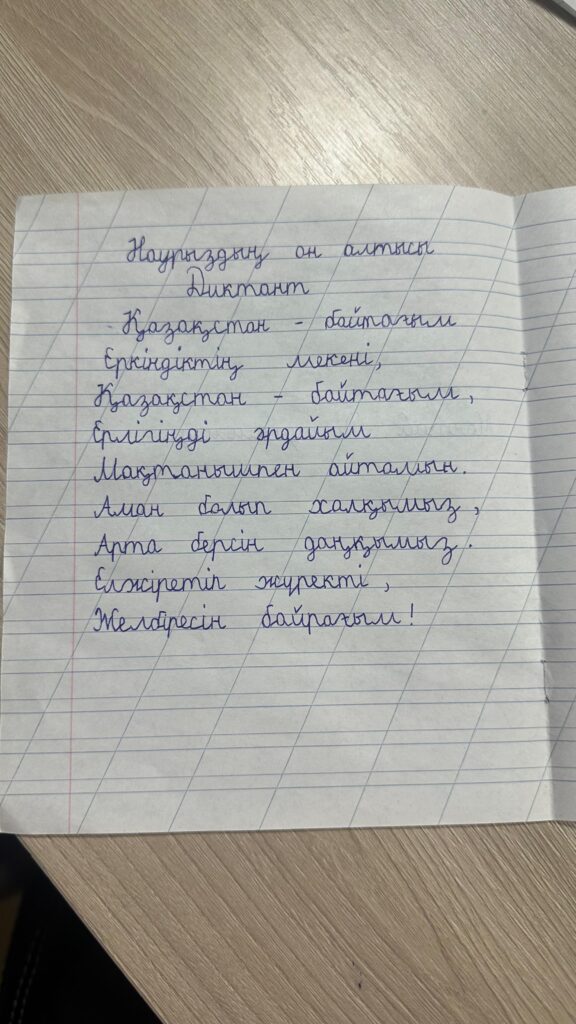 Наурыздың он алтысы
Диктант
Қазақстан - байтағым
Еркіндіктің мекені,
Қазақстан - байтағым,
Ерлігіңді әрдайым
Мақтанышпен айтамын.
Аман болып халқымыз,
Арта берсін даңқымыз.
Елжіретіп жүректі,
Желбіресін байрағым!